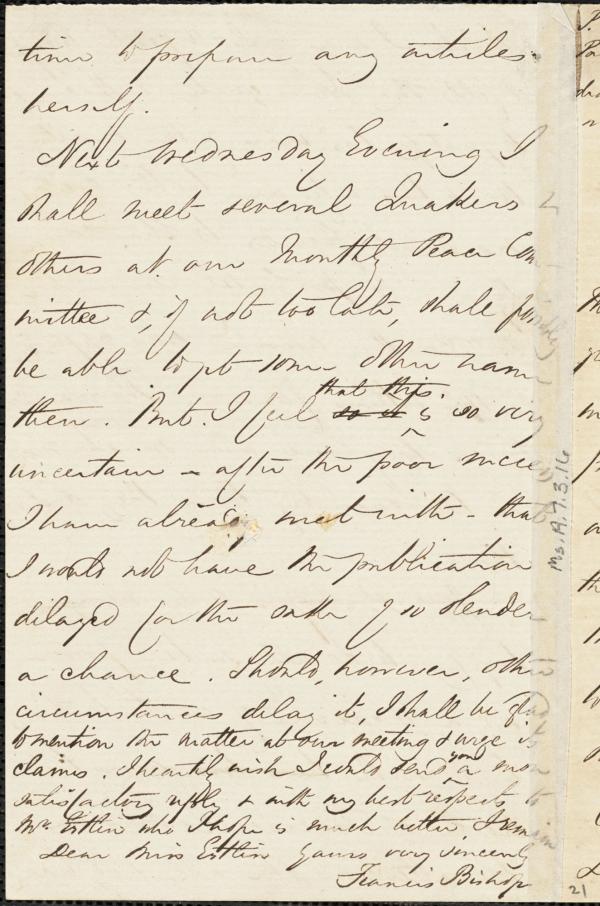 time to prepare any articles
herself.
Next Wednesday Evening I
shall meet several Quakers &
others at our Monthly Peace Com
mittee &, if not too late, shall possibly
be able to get some other name
then. But I feel so it that this is so very
uncertain - after the poor success
I have already met with - that
I would not have the publication
delayed for the sake of so slender
a chance. Should, however, other
circumstances delay it, I shall be glad
to mention the matter at our meeting & urge its
claims. I heartily wish I could send you a more
satisfactory reply & with my best respects to
Mr. Estlin who I hope is much better, I remain
Dear Miss Estlin yours very sincerely
Francis Bishop
Ms.A.7.3.16
21